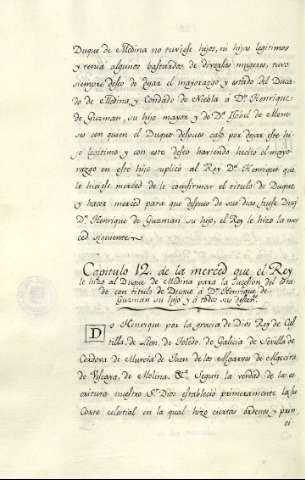 Duque de Medina no tuviese hijos, ni hijas legitimos
y tenia algunos bastardos, de diversas mugeres, tuvo
siempre deseo de dejar el mayorazgo y estado del Duca-
do de Medina, y Condado de Niebla á Dn. Henrique
de Guzman, su hijo mayor y de Dª. Isabel de Mene-
ses con quien el Duque despues casó por dejar este hi-
jo legitimo y con este deseo haviendo hecho el mayo-
razgo en este hijo suplicó al Rey Dn. Henrique que
le hiciese merced de le confirmar el titulo de Duque
y hacer merced para que despues de sus dias fuese Duq.
Dn. Henrique de Guzman su hijo, el Rey le hizo la mer-
ced siguiente
Capitulo 12. de la merced que el Rey
le hizo al Duque de Medina para la sucesion del Esta-
do con titulo de Duque á Dn. Henrique de
Guzman su hijo y á todos sus
Do Henrique por la gracia de Dios Rey de Cas-
tilla, de Leon, de Toledo, de Galicia de Sevilla de
Cordova de Murcia de Jaen de los Algarves de Algecira
de Vizcaya, de Molina. &ª. Segun la verdad de la es-
critura nuestro Sr. Dios estableció primeramente la su
Corte celestial en la qual hizo ciertas ordenes y prin
ci